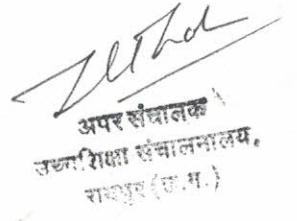 अपर संचालक
उच्च शिक्षा संचालनालय,
रायपुर (छ.ग.)